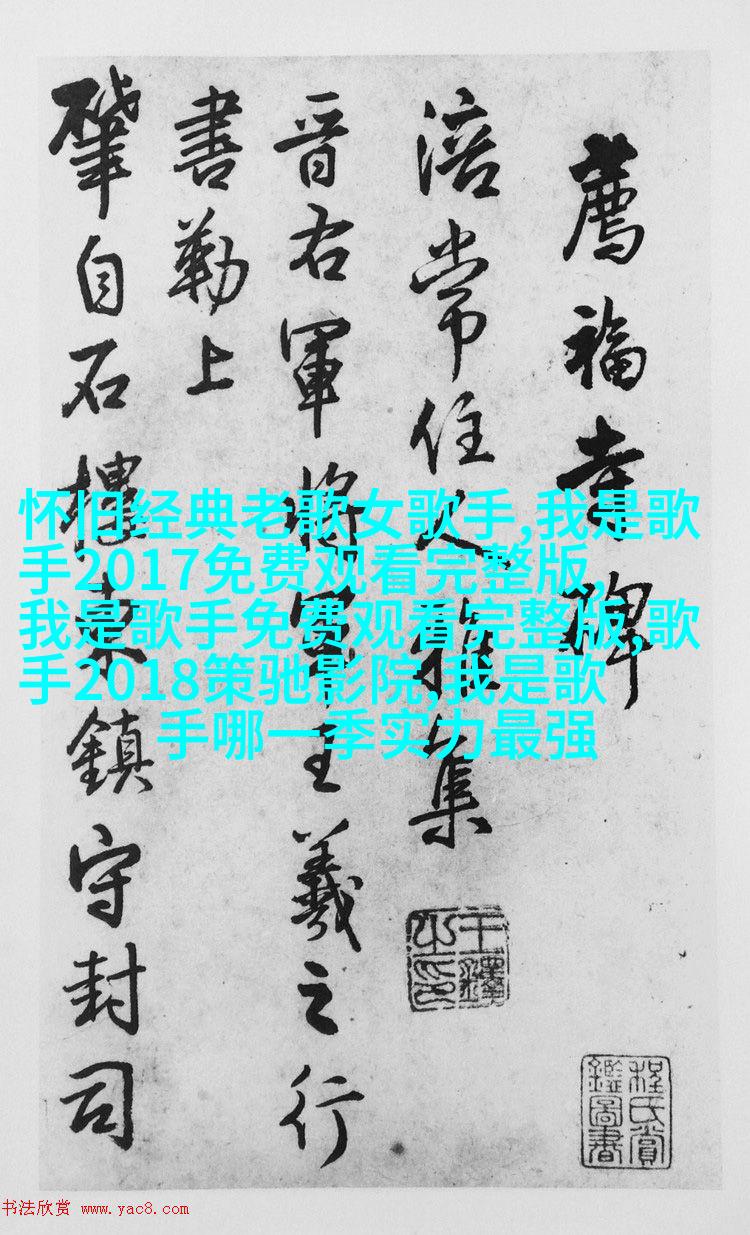 薦福寺碑
涪常住人雅集
晉右軍將軍王羲之行
書勒上
肇自石樓鎮守封司
怀旧经典老歌女歌手,我是歌
手2017免费观看完整版,
我是歌手免费观看完整版,歌
手2018策驰影院,我是歌
手哪一季实力最强
王鐸
之印
程氏賞
鑑圖書
书法欣赏 www.yac8.com